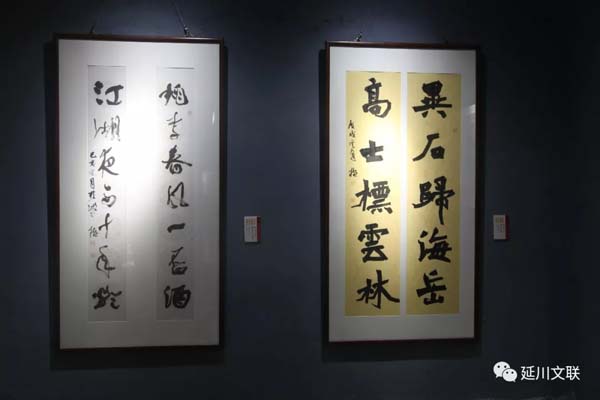 桃李春风一杯酒
江湖夜雨十年燈
異石歸海岳
高士標雲林
延川文联